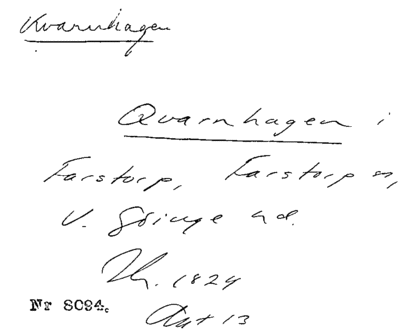 Kvarnhagen
Qvarnhagen i
Farstorp, Farstorp sn,
V. Göinge hd.
1824
Nr 8094.
Akt 13